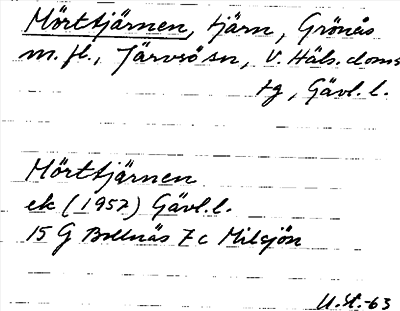 Mörttjärnen, tjärn, Grönås
m. fl., Järvsö sn, V. Häls. doms
tg, Gävl. l.
Mörttjärnen
ek (1957) Gävl. l.
15 G Bollnäs 7 c Milsjön
U.St.-63